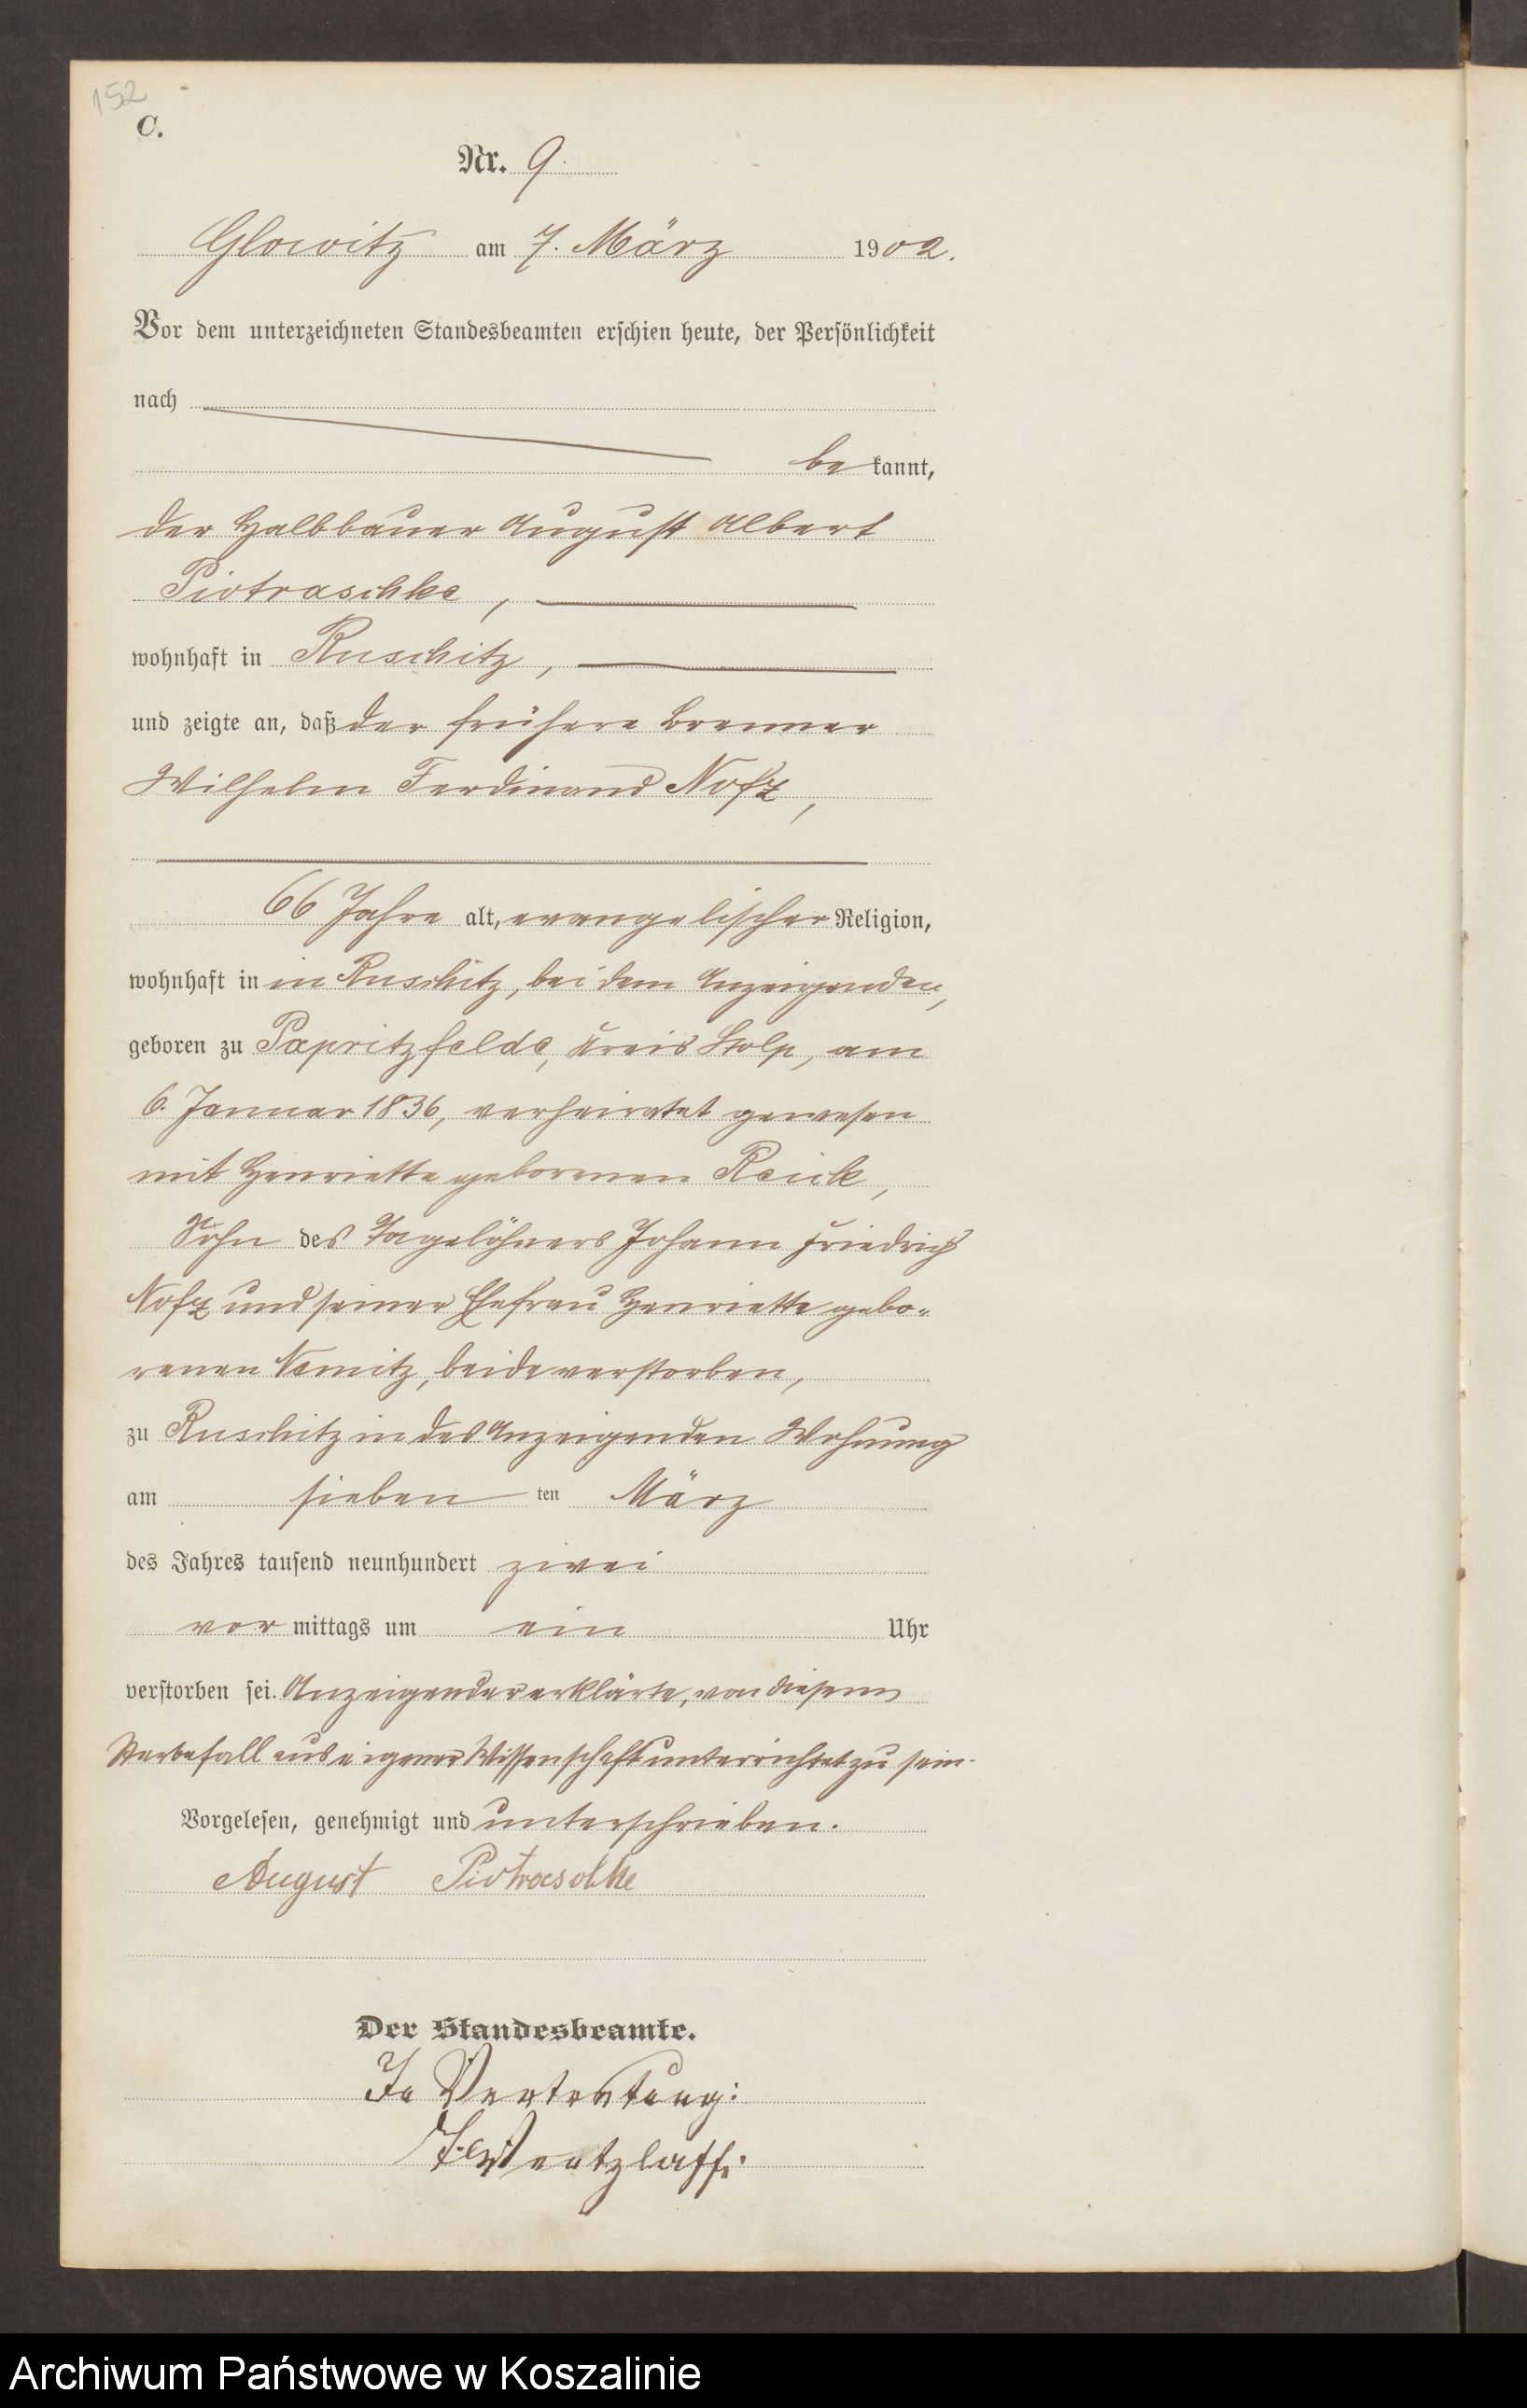 152
C.
Nr. 9.
Glowitz am 7. März 1902.
Vor dem unterzeichneten Standesbeamten erschien heute, der Persönlichkeit
nach
be kannt,
der Halbbauer August Albert
Piotraschke,
wohnhaft in Ruschitz,
und zeigte an, daß der frühere Brenner
Wilhelm Ferdinand Nofz,
66 Jahre alt, evangelischer Religion,
wohnhaft in in Ruschitz, bei dem Anzeigenden,
geboren zu Papritzfelde, Kreis Stolp, am
6. Januar 1836, verheiratet gewesen
mit Henriette geborenen Reick,
Sohn des Tagelöhners Johann Friedrich
Nofz und seiner Ehefrau Henriette gebo-
renen Nemitz, beide verstorben,
zu Ruschitz in des Anzeigenden Wohnung
am sieben ten März
des Jahres tausend neunhundert zwei
vor mittags um ein Uhr
verstorben sei. Anzeigender erklärte, von diesem
Sterbefall aus eigener Wissenschaft unterrichtet zu sein.
Vorgelesen, genehmigt und unterschrieben.
August Piotraschke
Der Standesbeamte.
In Vertretung:
Wentzlaff.
Archiwum Państwowe w Koszalinie